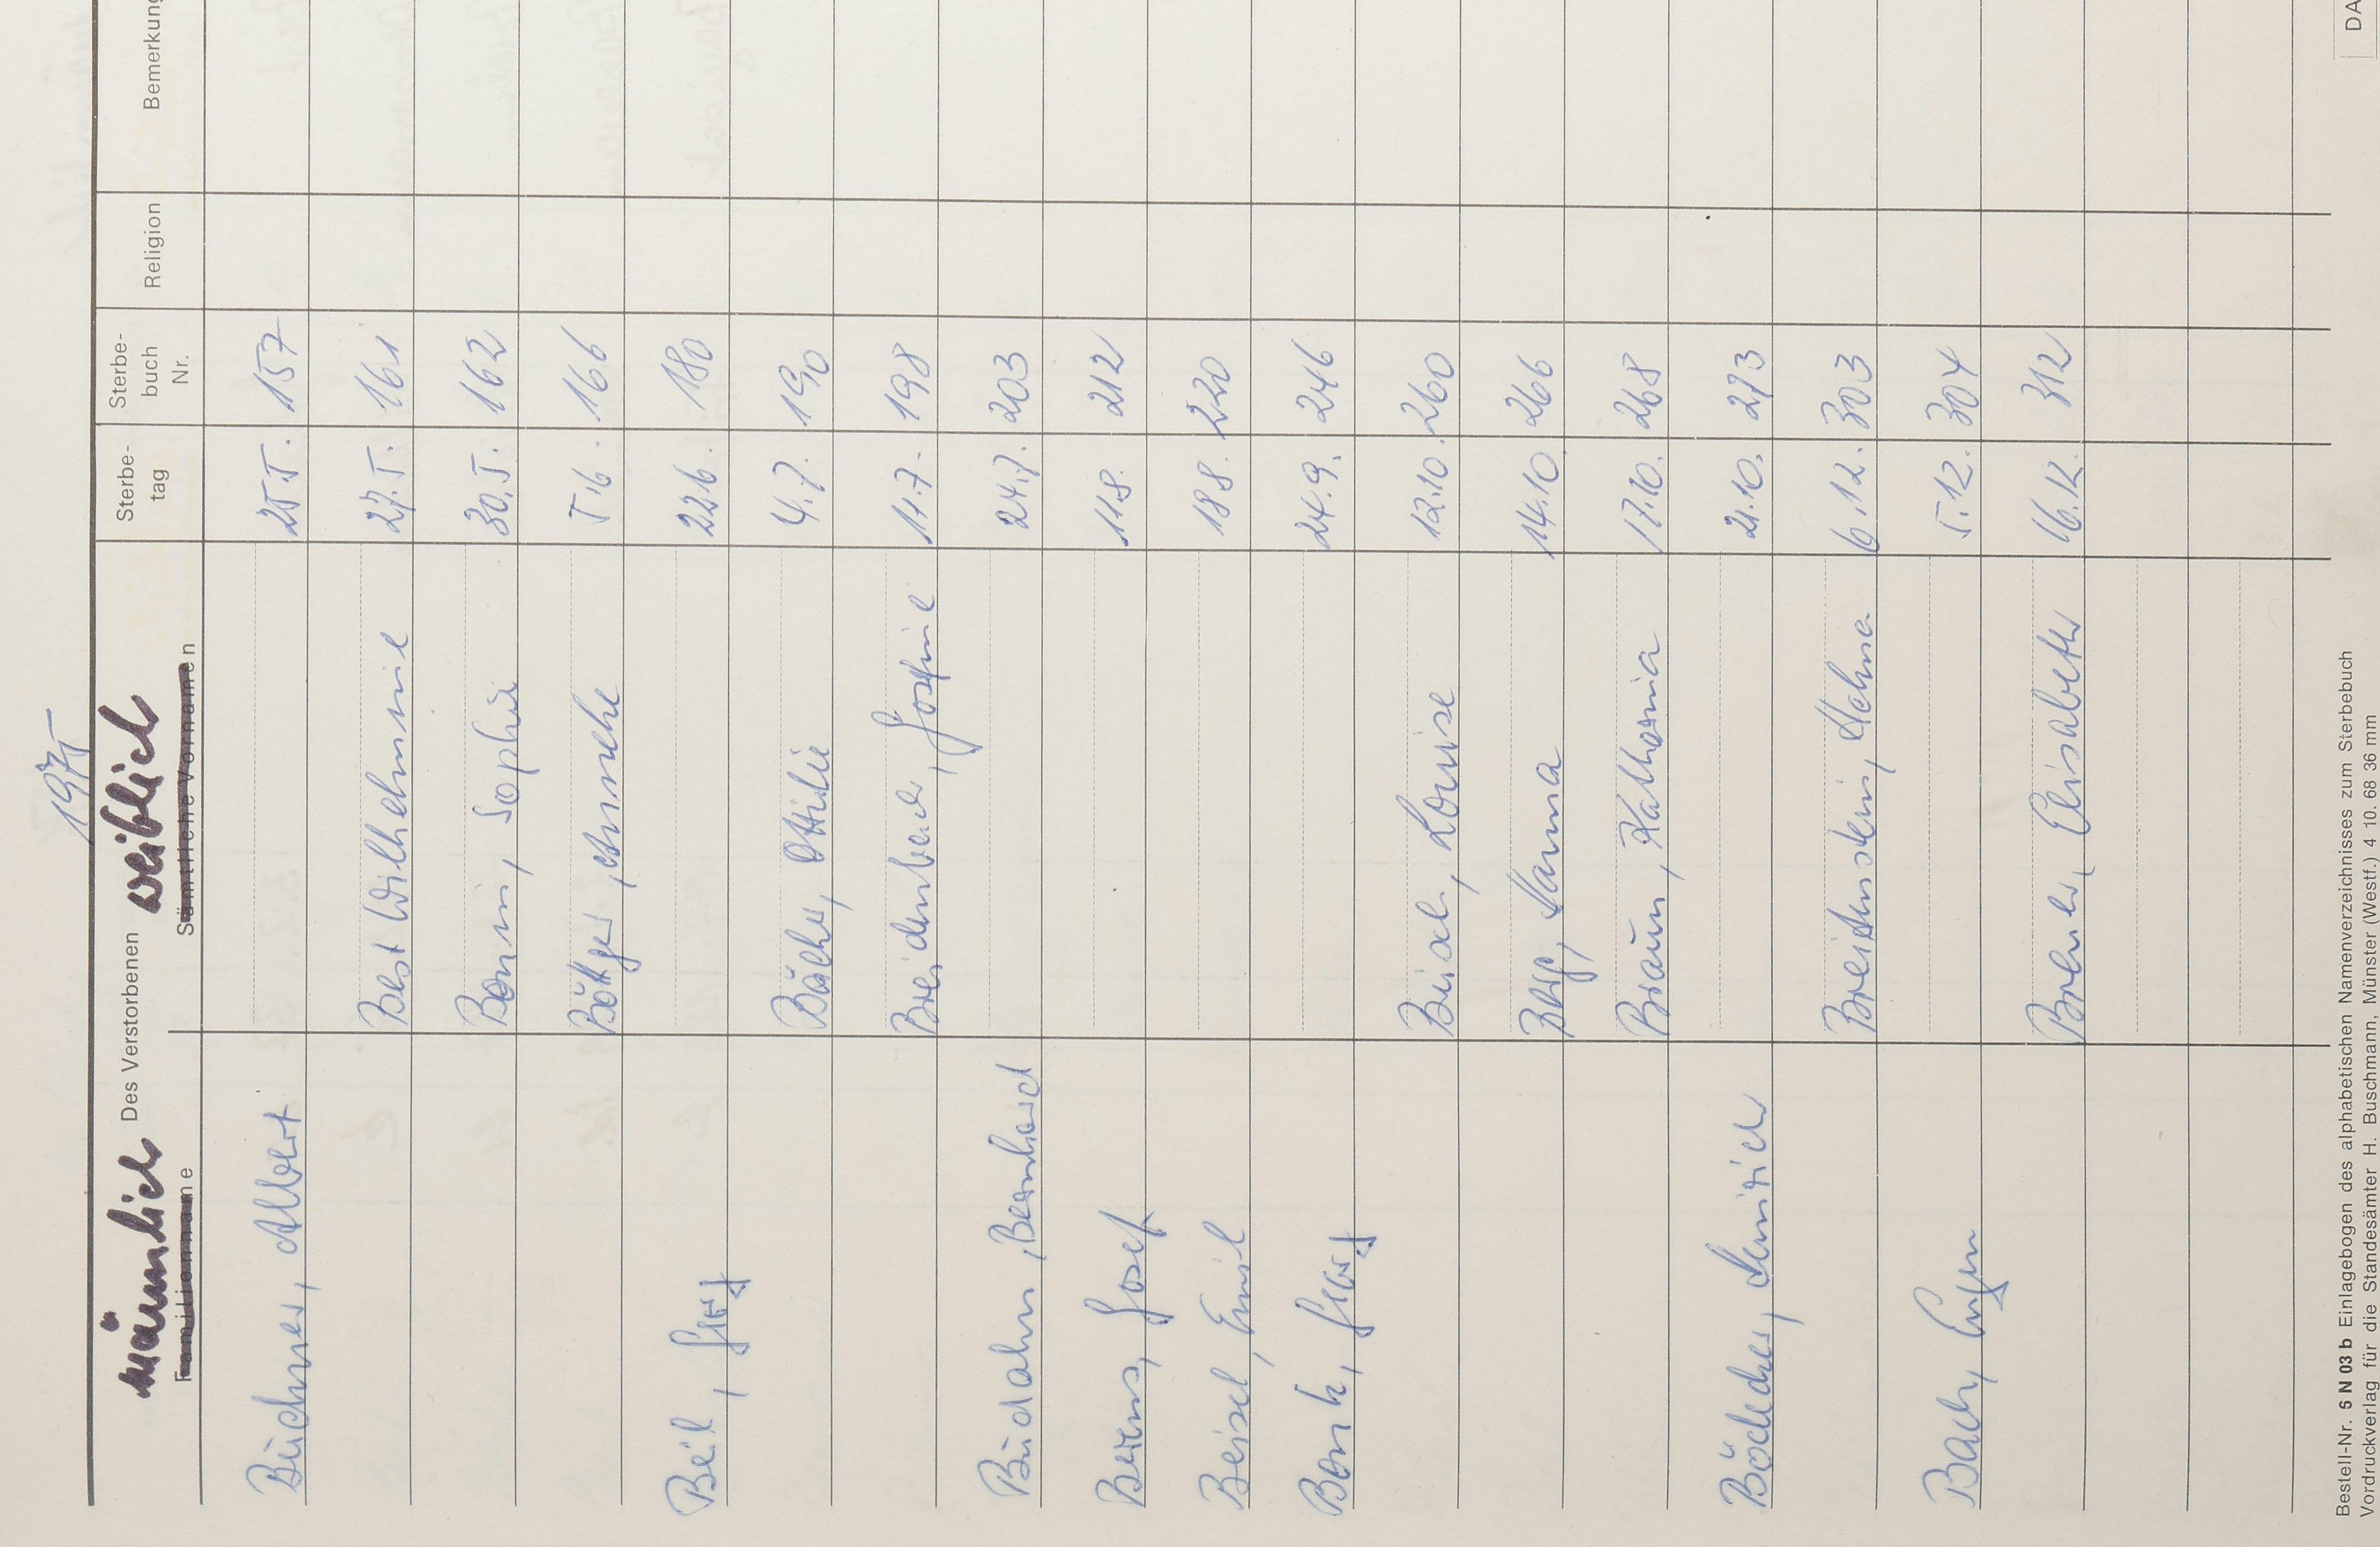 1975
männlich Des Verstorbenen weiblich Sterbe- Sterbe- Religion Bemerkung
Familienname Sämtliche Vornamen tag buch
Nr.
Büchner, Albert 25.5. 157
Best Wilhelmine 27.5. 161
Bonin, Sophie 30.5. 162
Böttger, Annche 5.6. 166
Beil, 22.6. 180
Bücher, Ottilie 4.7. 190
Breidenbach, Josefine 11.7. 198
Budahn, Bernhard 24.7. 203
Berens, Josef 11.8. 212
Beisel, Emil 18.8. 220
Bonk, 24.9. 246
Busch, Louise 12.10. 260
Berg, Hanna 14.10. 266
Braun, Katharina 17.10. 268
Böttcher, Heinrich 21.10. 273
Breitenstein, 6.12. 303
Bach, Eugen 5.12. 304
Bremer, Elisabeth 16.12. 312
Bestell-Nr. 5 N 03 b Einlagebogen des alphabetischen Namenverzeichnisses zum Sterbebuch DA
Vordruckverlag für die Standesämter H. Buschmann, Münster (Westf.) 4 10. 68 36 mm